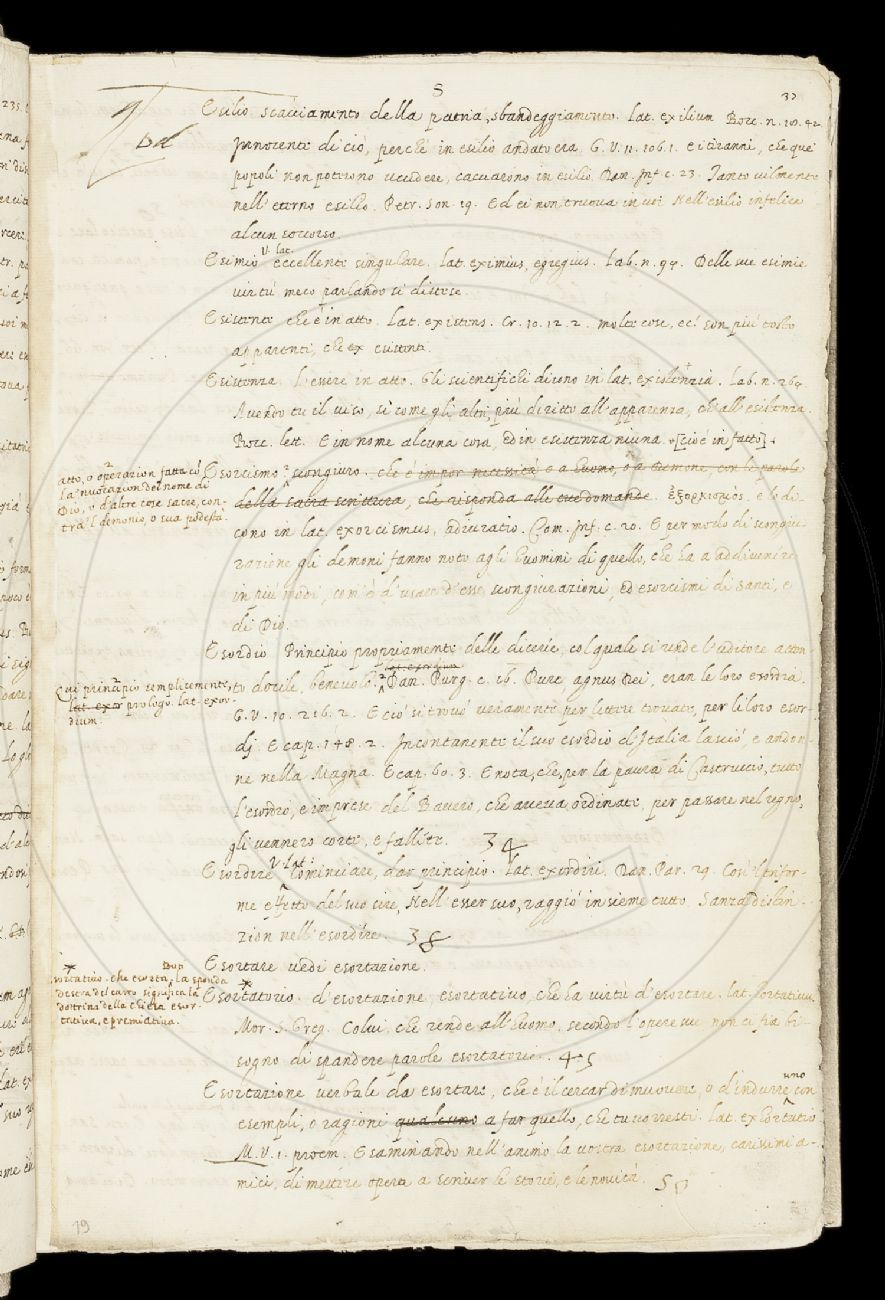 S
32
Esilio scacciamento della patria, sbandeggiamento. Lat. exilium Bocc. n. 18. 42.
Innocente di ciò, perché in esilio andato era. G. V. 11. 106. 1. e i tiranni, che que'
popoli non potriono uccidere, cacciarono in esilio. Dan. Inf. c. 23. Tanto vilmente
nell'eterno esilio. Petr. Son. 19. Ed ei non truova in voi Nell'esilio infelice
alcun soccorso.
Esimio V. lat. eccellente singulare. Lat. eximius, egregius. Lab. n. 94. Delle sue esimie
virtù meco parlando si distese.
Esistente che è in atto. Lat. existens. Cr. 10. 12. 2. molte cose, ec. son più tosto
apparenti, che esistenti.
Esistenza. L'essere in atto. Gli scientifichi dicono in lat. existentia. Lab. n. 264.
Avendo tu il viso, sì come gli altri, più diritto all'apparenza, ch'all'esistenza.
Bocc. lett. E in nome alcuna cosa, ed in esistenza niuna. [cioè in fatto]
atto, o operazion fatta cō
la'nuocazion del nome di
Dio, o d'altre cose sacre, con-
tra'l demonio, o sua podestà.
Esorcismo scongiuro. che è impor necessità o a huomo, o a demone con le parole
della sacra scrittura, che risponda alle tue domande. ἐξορκισμός. e lo di-
cono in lat. exorcismus, adiuratio. Com. Inf. c. 20. E per modo di scongiu-
razione gli demoni fanno noto agli huomini di quello, che ha a addivenire
in più modi, com'è d'usare d'esse scongiurazioni, ed esorcismi di Santi, e
di Dio.
Esordio Principio propriamente delle dicerie, col quale si rende l'uditore atten-
to docile, benevolo. Dan. Purg. c. 16. Pure agnus Dei, eran le loro esordia.
Qui principio semplicemente,
lat. exor prologo. lat. exor-
dium.
G. V. 10. 216. 2. E ciò si trovò veramente per lettere trovate, per li loro esor-
dj. E cap. 148. 2. Incontanente il suo esordio d'Italia lasciò, e andon-
ne nella Magna. E cap. 60. 3. E nota, che, per la paura di Castruccio, tutto
l'esordio, e imprese del Bavero, che aveva ordinate, per passare nel regno,
gli vennero corte, e fallite. 34
Esordire V. Lat. Cominciare, dar principio. Lat. exordiri. Dan. Par. 29. Così'l trifor-
me effetto del suo sire, Nell'esser suo, raggiò insieme tutto. Sanza distin-
zion nell'esordire. 38
Esortare vedi esortazione.
esortativo. che esorta, la sponda
destra del carro significa la
dottrina della chiesa esor-
tativa, e premiativa.
Esortatorio. d'esortazione, esortativo, che ha virtù d'esortare. lat. hortativus
Mor. S. Greg. Colui, che rende all'huomo, secondo l'opere sue non ci fia bi-
sogno di spandere parole esortatorie. 45
Esortazione verbale da esortare, che è il cercar di muovere, o d'indurre uno con
esempli, o ragioni qualcuno a far quello, che tu vorresti. lat. exhortatio
M. V. 1. proem. Esaminando nell'animo la vostra esortazione, carissimi a-
mici, di mettere opera a scriver le storie, e le novità. 50
19